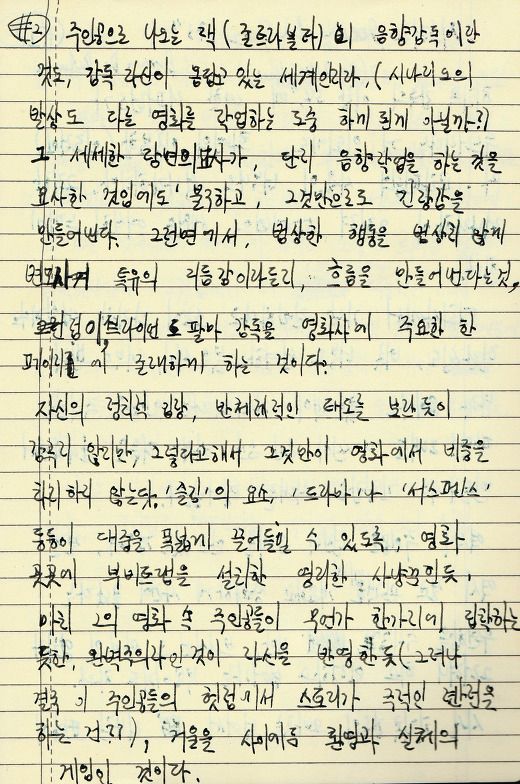 #2 주인공으로 나오는 잭(존트라볼타)의 음향감독이란
것도, 감독 자신이 몸담고 있는 세계인지라, (시나리오의
발상도 다른 영화를 작업하는 도중 하게 된게 아닐까?)
그 세세한 장면묘사가, 단지 음향작업을 하는 것을
묘사한 것임에도 불구하고, 그것만으로도 긴장감을
만들어낸다. 그런면에서, 범상한 행동을 범상치 않게
변모시켜 특유의 리듬감이라든지, 흐름을 만들어낸다는것,
그런점이, 브라이언 드 팔마 감독을 영화사에 주요한 한
페이지에 존재하게 하는 것이다.
자신의 정치적 입장, 반체제적인 태도를 보란듯이
감추지 않지만, 그렇다고해서 그것만이 영화에서 비중을
차지하지 않는다. '스릴'의 요소, '드라마'나 '서스펜스'
등등이 대중을 폭넓게 끌어들일 수 있도록, 영화
곳곳에 부비트랩을 설치한 영리한 사냥꾼인듯.
마치 그의 영화 속 주인공들이 무언가 한가지에 집착하는
듯한, 완벽주의자인 것이 자신을 반영한듯(그러나
결국 이 주인공들의 헛점에서 스토리가 극적인 반전을
하는 건??), 거울을 사이에둔 환영과 실제의
게임인 것이다.